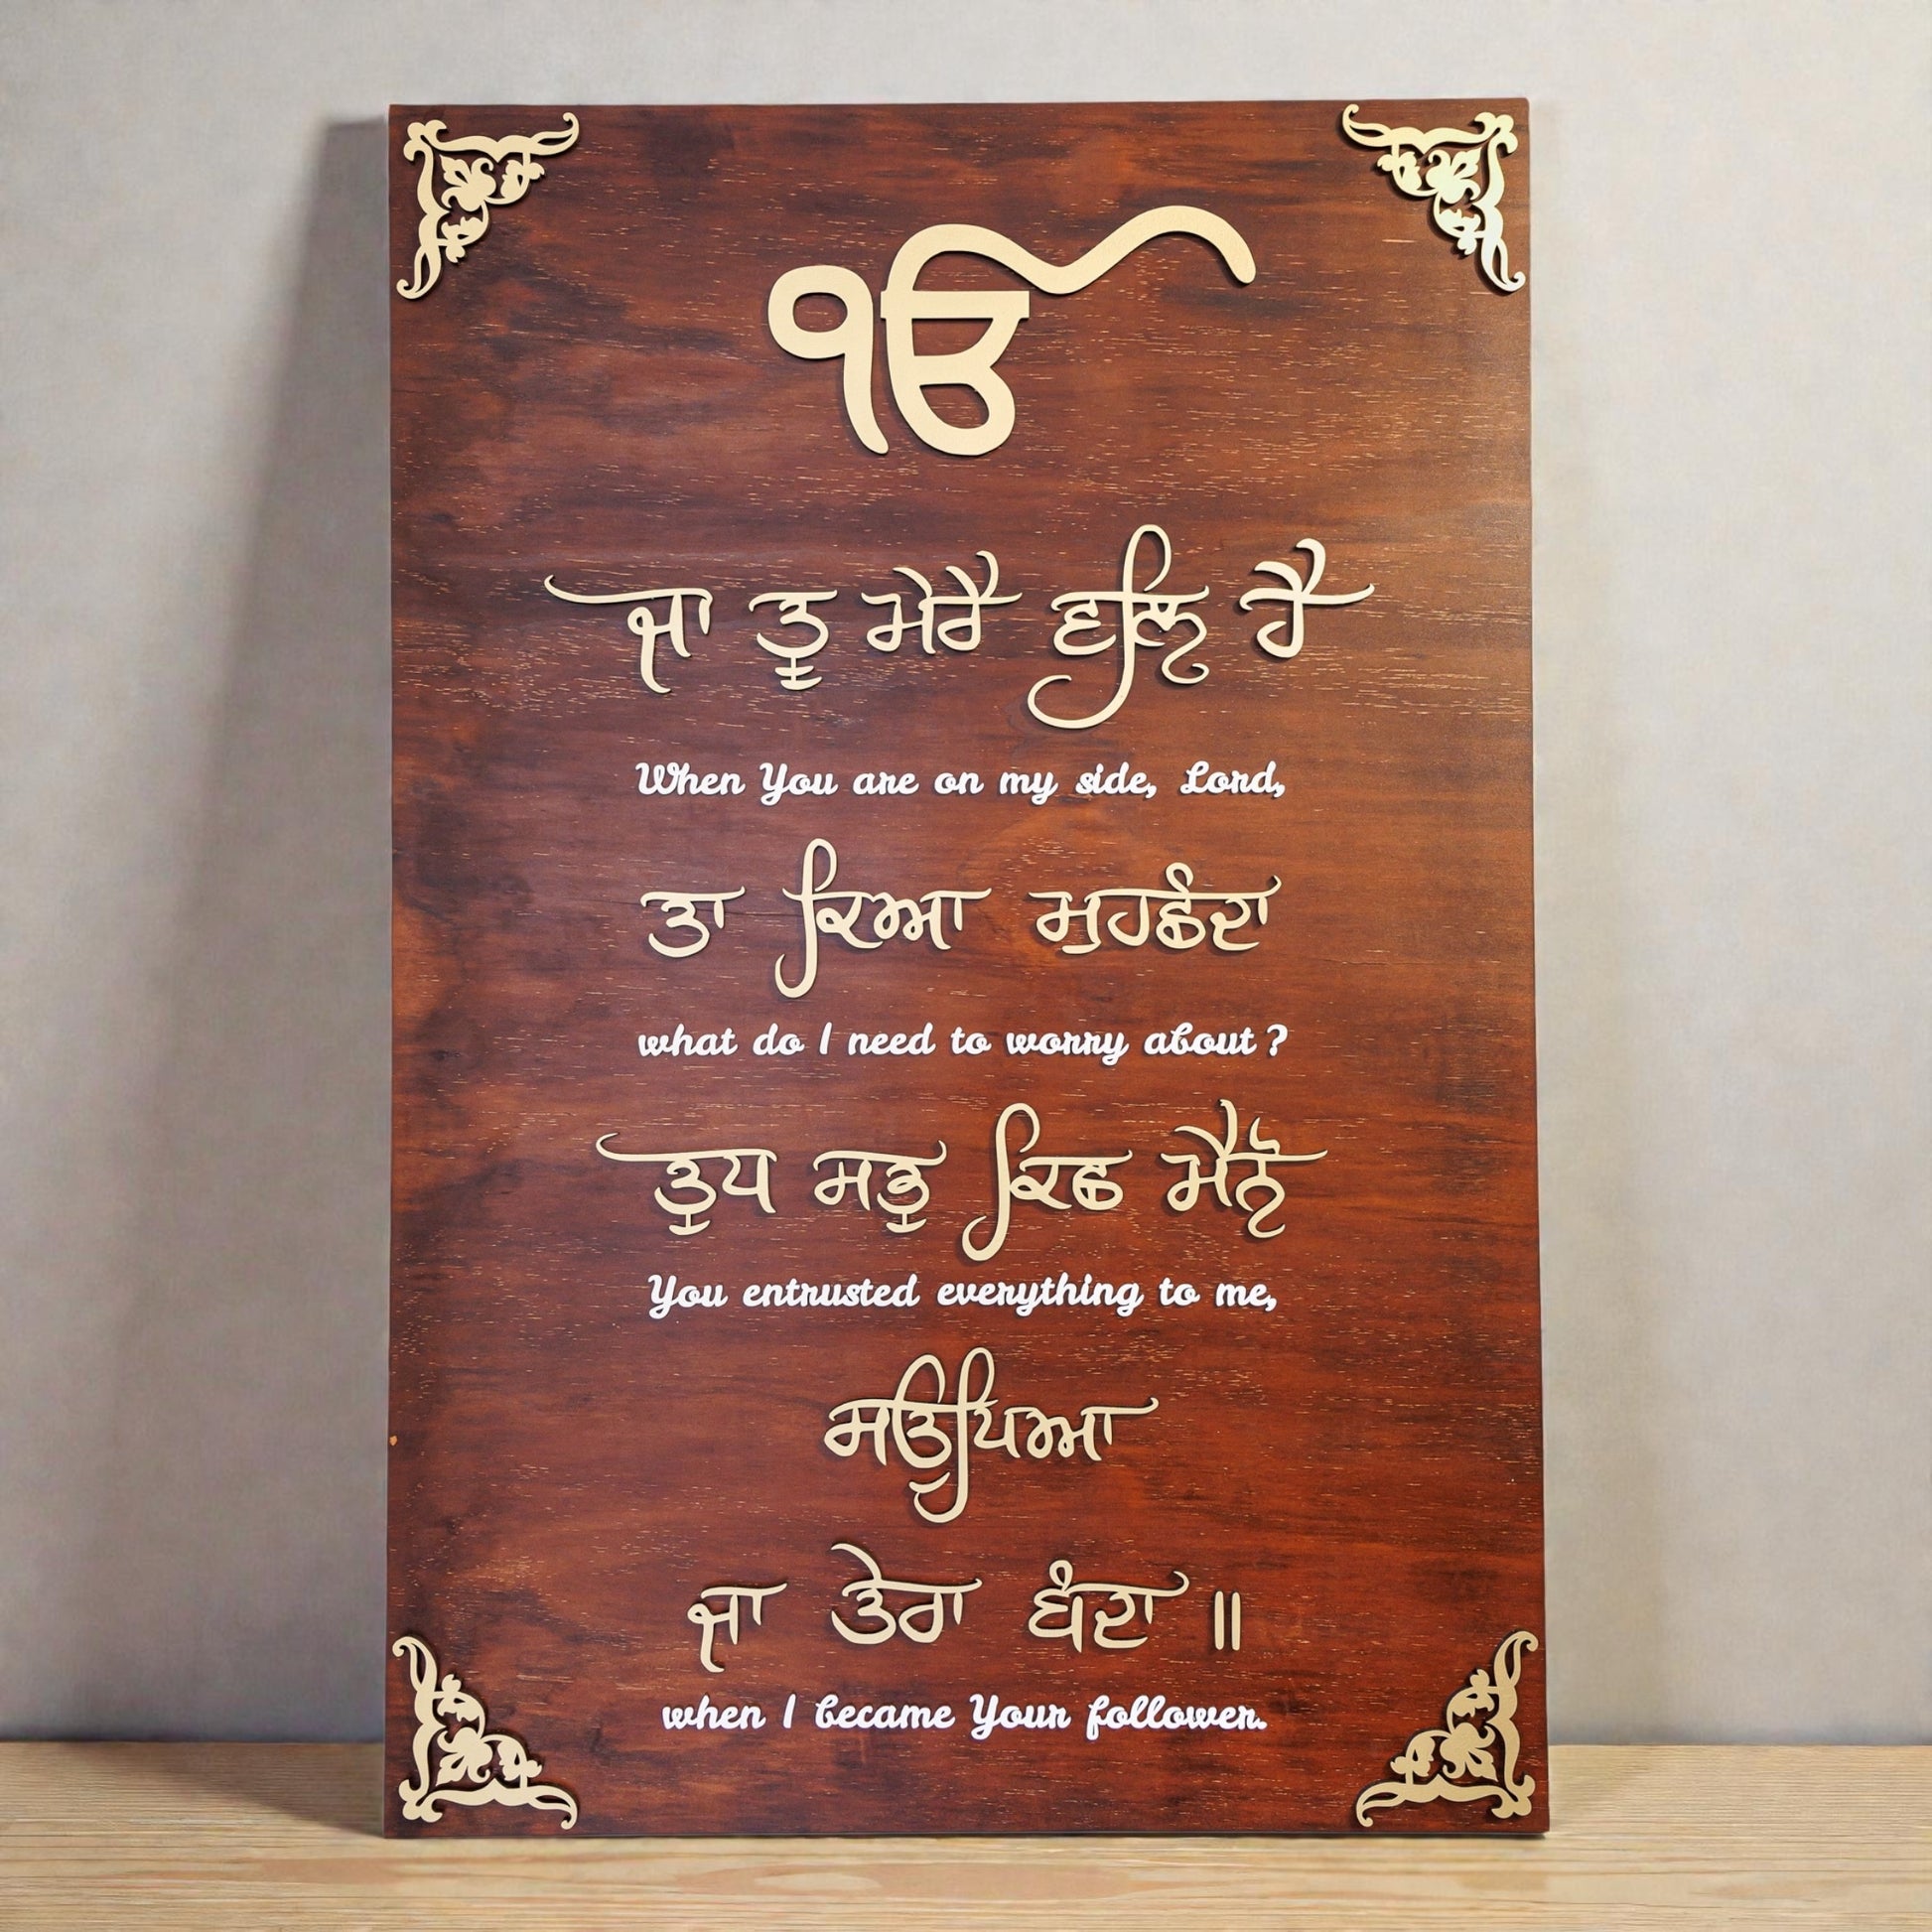 ੴ
ਜਾ ਤੂ ਮੇਰੈ ਵਲਿ ਹੈ
When You are on my side, Lord,
ਤਾ ਕਿਆ ਮੁਹਛੰਦਾ
what do I need to worry about?
ਤੁਧ ਸਭੁ ਕਿਛ ਮੈਨੋ
You entrusted everything to me,
ਸਉਪਿਆ
ਜਾ ਤੇਰਾ ਬੰਦਾ ॥
when I became Your follower.